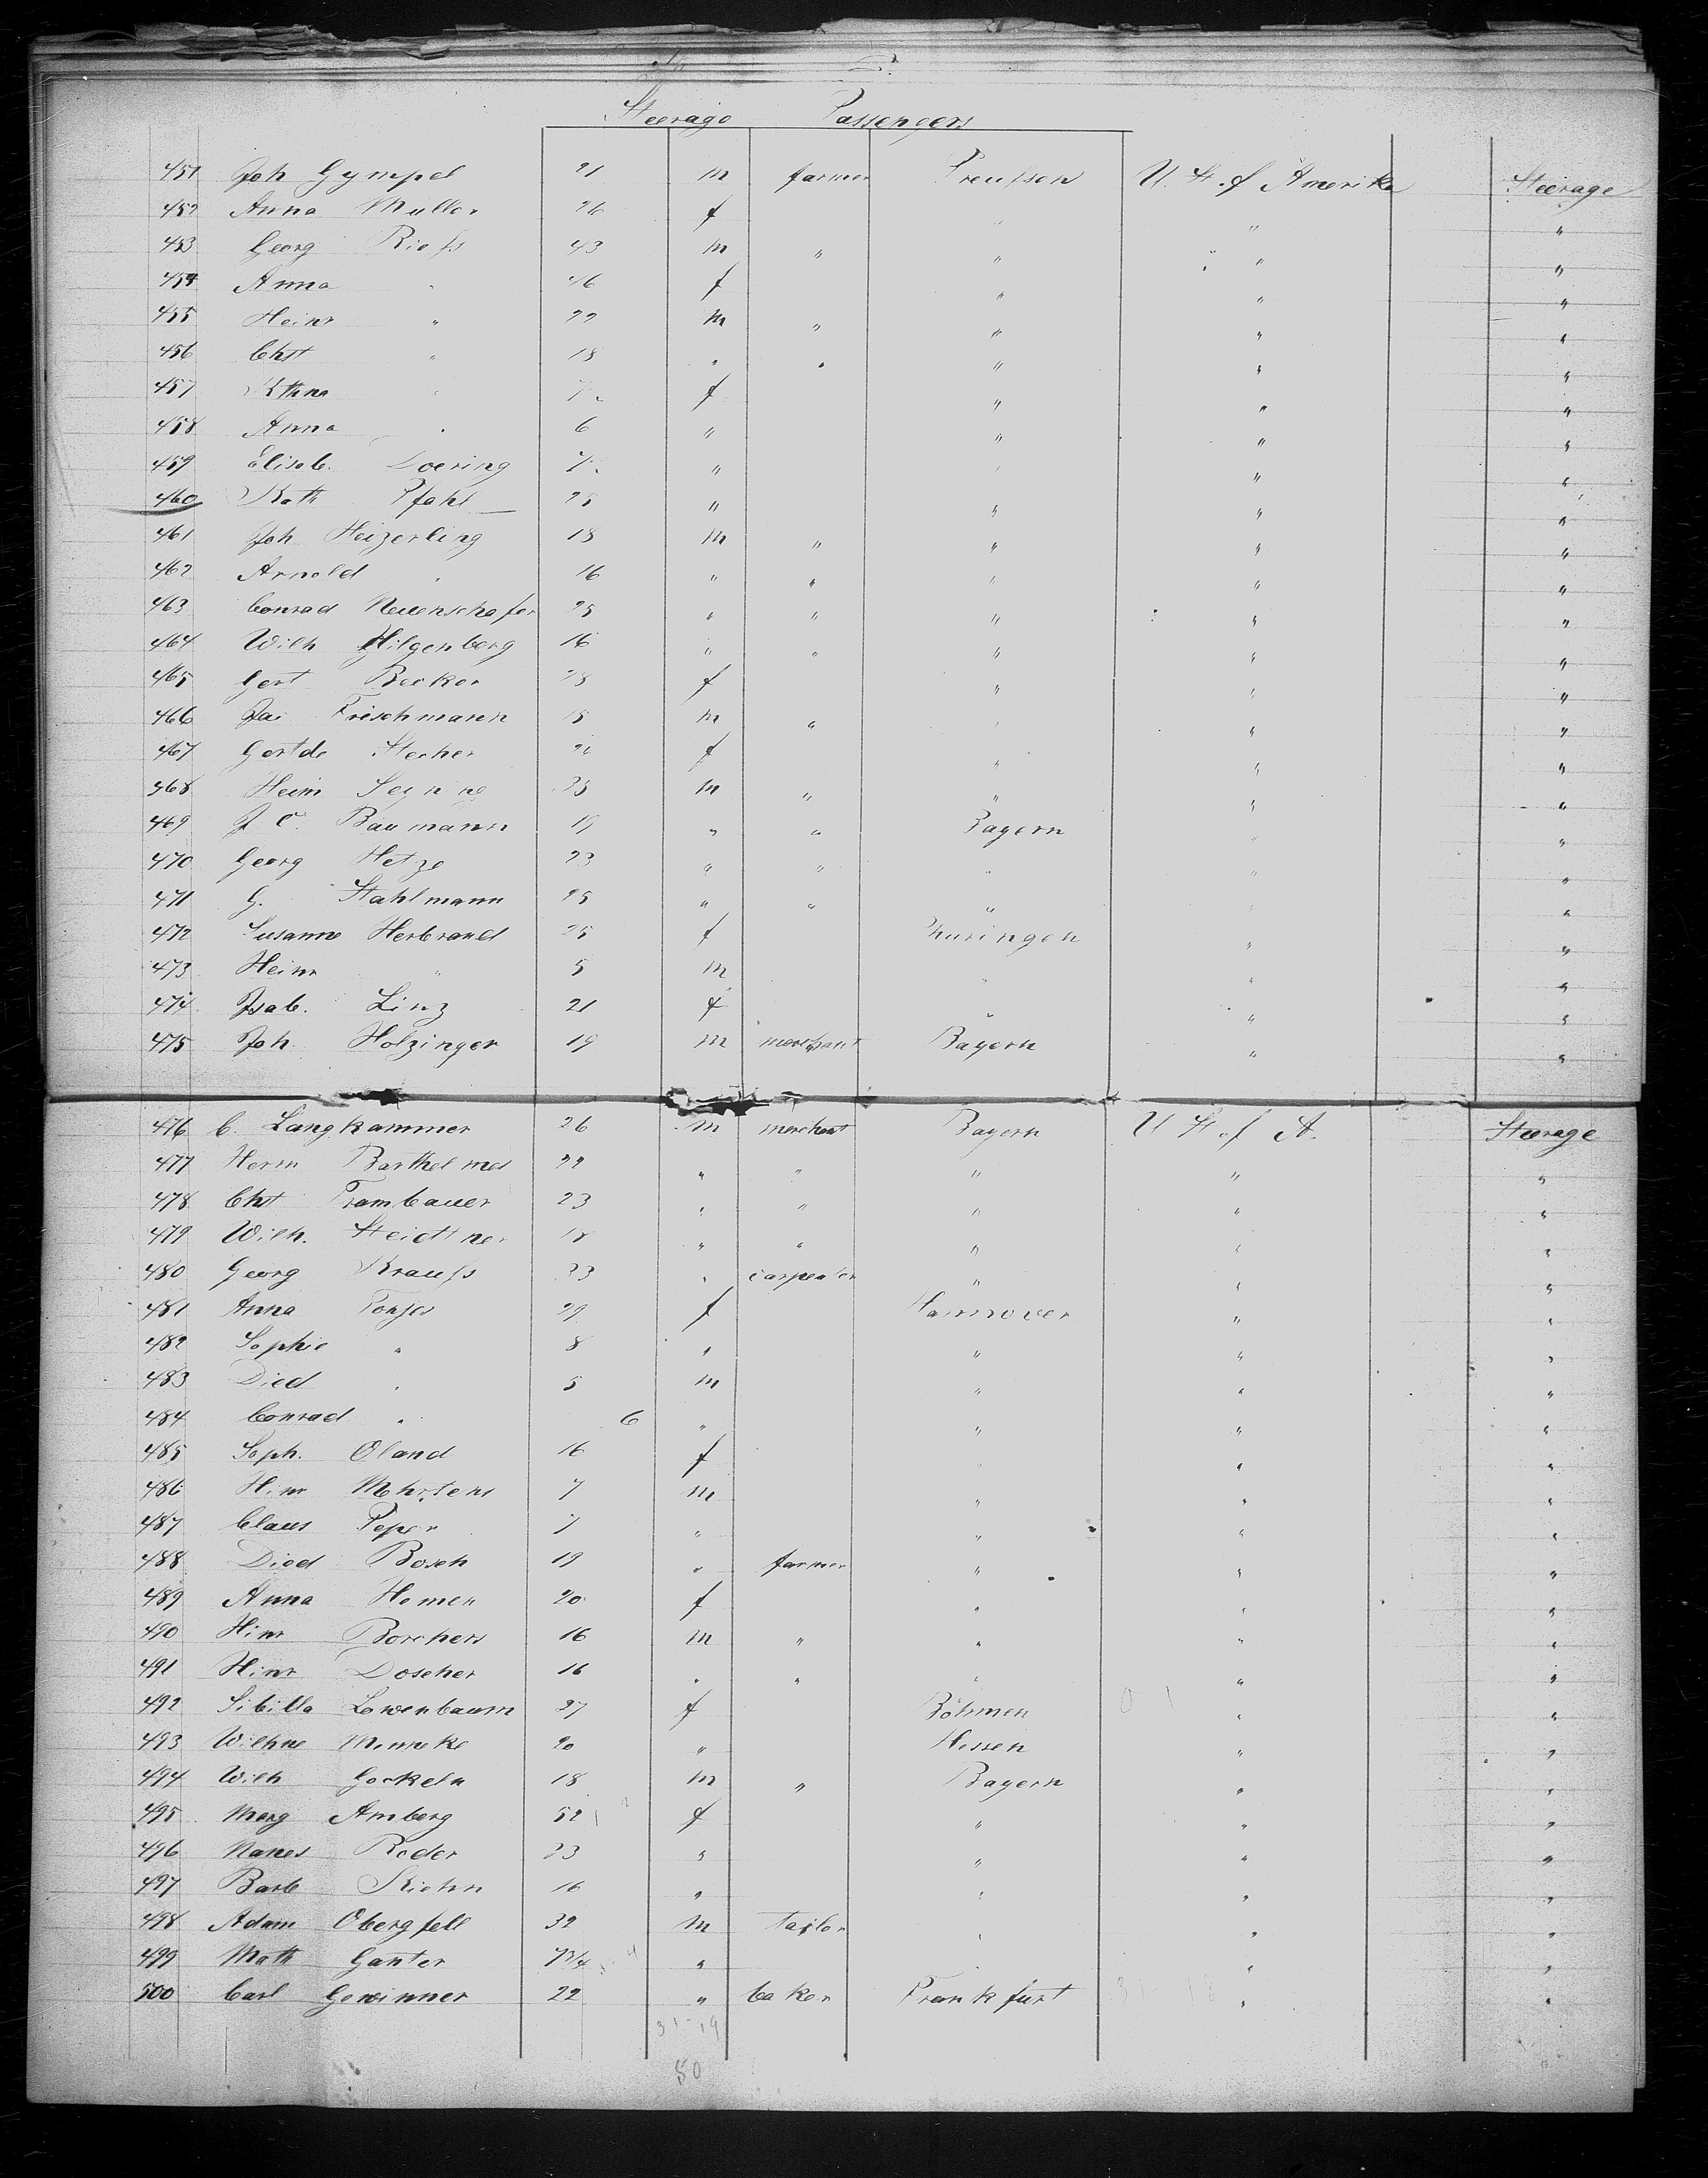 Steerage Passengers
451 Joh Gympel 21 m farmer Preußen U. St. of Amerika Steerage
452 Anna Muller 26 f " " "
453 Georg Rieß 43 m " " " "
454 Anna " 46 f " " "
455 Heinr " 22 m " " " "
456 Chst " 18 " " " " "
457 " f " " "
458 Anna " 6 " " " "
459 Elisab. Doering " " " "
460 Kath Pfahl 25 " " " "
461 Joh Heizerling 18 m " " " "
462 Arnold " 16 " " " " "
463 Conrad Neuenschafer 25 " " " " "
464 Wilh Hilgenberg 16 " " " " "
465 Gert Becker 28 f " " "
466 Frischmann 15 m " " " "
467 Gertde Stecher f " " "
468 Heinr 35 m " " " "
469 J C. Baumann 19 " " Bayern " "
470 Georg Hetze 23 " " " " "
471 G. Stahlmann 25 " " " " "
472 Susanne Herbrand 25 f Thuringen " "
473 Heinr " 5 m " " "
474 Isab. Linz 21 f " " "
475 Joh. Holzinger 19 m merchant Bayern " "
476 C. Langkammer 26 m merchant Bayern U St. of A. Steerage
477 Herm Barthelmes 22 " " " " "
478 Chst Trambauer 23 " " " " "
479 Wilh. Steidtner 18 " " " " "
480 Georg Krauß 33 " carpenter " " "
481 Anna Tonjes 29 f Hannover " "
482 Sophie " 8 " " " "
483 Died " 5 m " " "
484 Conrad " 6 " " " "
485 Soph. Oland 16 f " " "
486 Hinr Mehrtens 7 m " " "
487 Claus Peper 7 " " " "
488 Died Bosch 19 " farmer " " "
489 Anna Homen 20 f " " "
490 Hinr Borchers 16 m " " " "
491 Hinr Doscher 16 " " " " "
492 Sibilla Lowenbaum 27 f Böhmen 0 1 " "
493 Wilhne 20 " Hessen " "
494 Wilh Gockeln 18 m " Bayern " "
495 Marg Amberg 52 f " " "
496 Roder 23 " " " "
497 Barb 16 " " " "
498 Adam Obergfell 32 m Tailor " " "
499 Math Ganter " " " "
500 Carl Gewinner 22 " baker Frankfurt " "
31-19
50